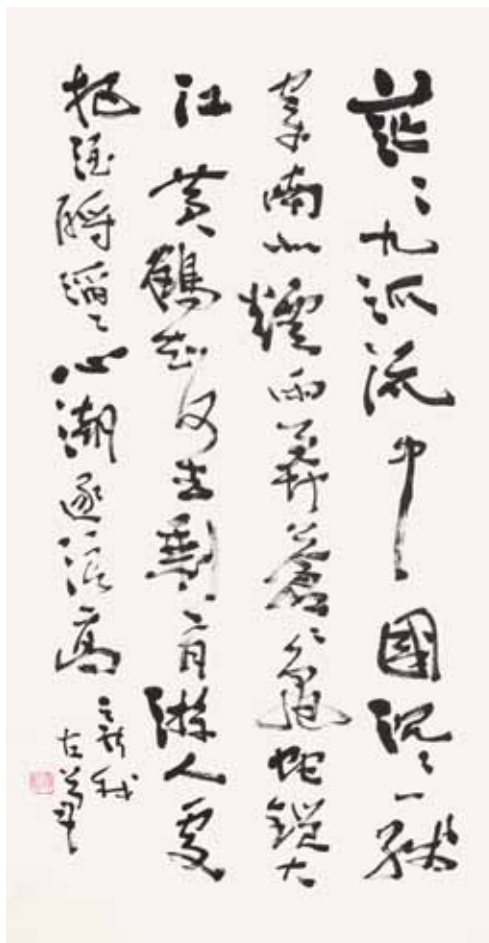 茫〻九派流中國沉〻一線
穿南北煙雨莽蒼〻龜蛇鎖大
江黃鶴知何去剩有游人處
把酒酹滔〻心潮逐浪高